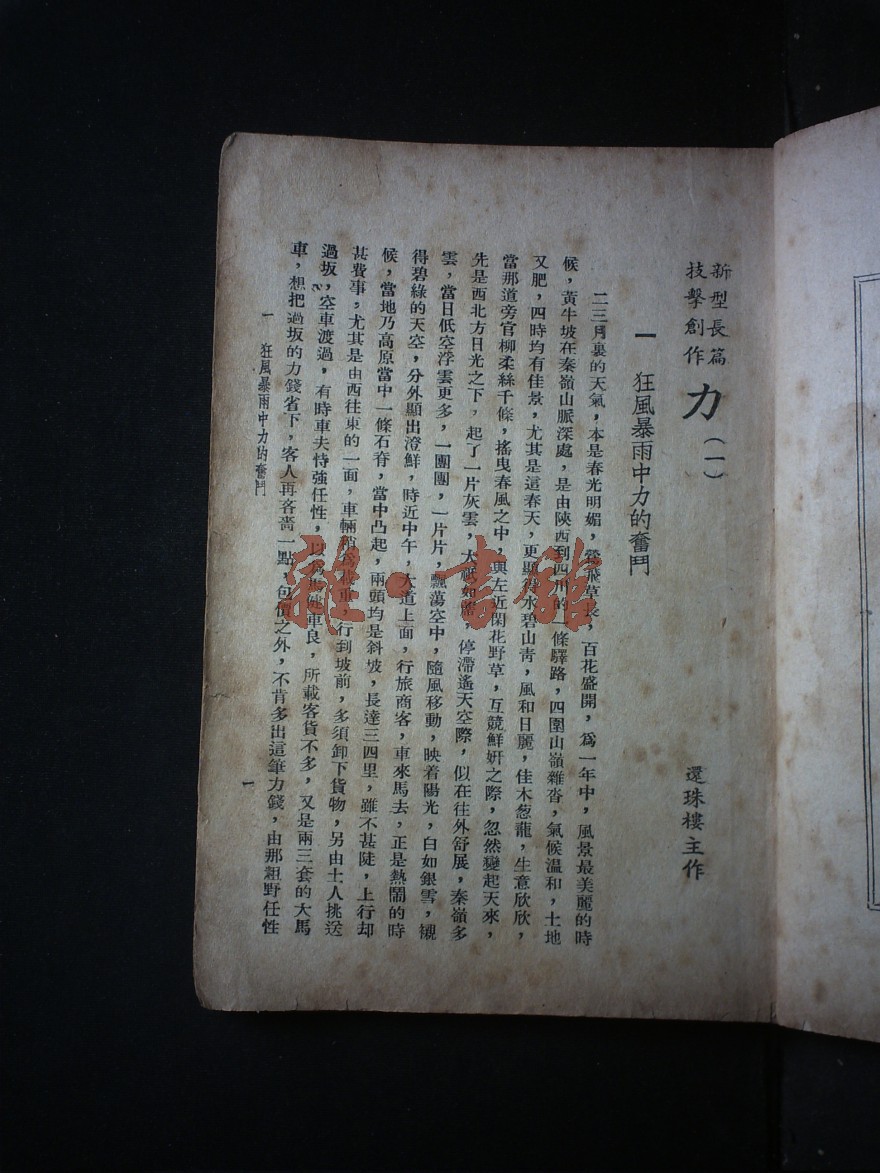 新型長篇
技擊創作
力(一)
還珠樓主作
一 狂風暴雨中力的奮鬥
二三月裏的天氣,本是春光明媚,鶯飛草長,百花盛開,爲一年中,風景最美麗的時
候,黃牛坡在秦嶺山脈深處,是由陝西到四川的一條驛路,四圍山嶺雜沓,氣候温和,土地
又肥,四時均有佳景,尤其是這春天,更顯得水碧山青,風和日麗,佳木葱蘢,生意欣欣,
當那道旁官柳柔絲千條,搖曳春風之中,與左近閑花野草,互競鮮姸之際,忽然變起天來,
先是西北方日光之下,起了一片灰雲,大祇如席,停滯遙天空際,似在往外舒展,秦嶺多
雲,當日低空浮雲更多,一團團,一片片,飄蕩空中,隨風移動,映着陽光,白如銀雪,襯
得碧綠的天空,分外顯出澄鮮,時近中午,大道上面,行旅商客,車來馬去,正是熱鬧的時
候,當地乃高原當中一條石脊,當中凸起,兩頭均是斜坡,長達三四里,雖不甚陡,上行却
甚費事,尤其是由西往東的一面,車輛稍爲載重,行到坡前,多須卸下貨物,另由土人挑送
過坂,空車渡過,有時車夫恃強任性,以爲馬健車良,所載客貨不多,又是兩三套的大馬
車,想把過坂的力錢省下,客人再吝嗇一點,包價之外,不肯多出這筆力錢,由那粗野任性
一 狂風暴雨中力的奮鬥
一
雜·書館